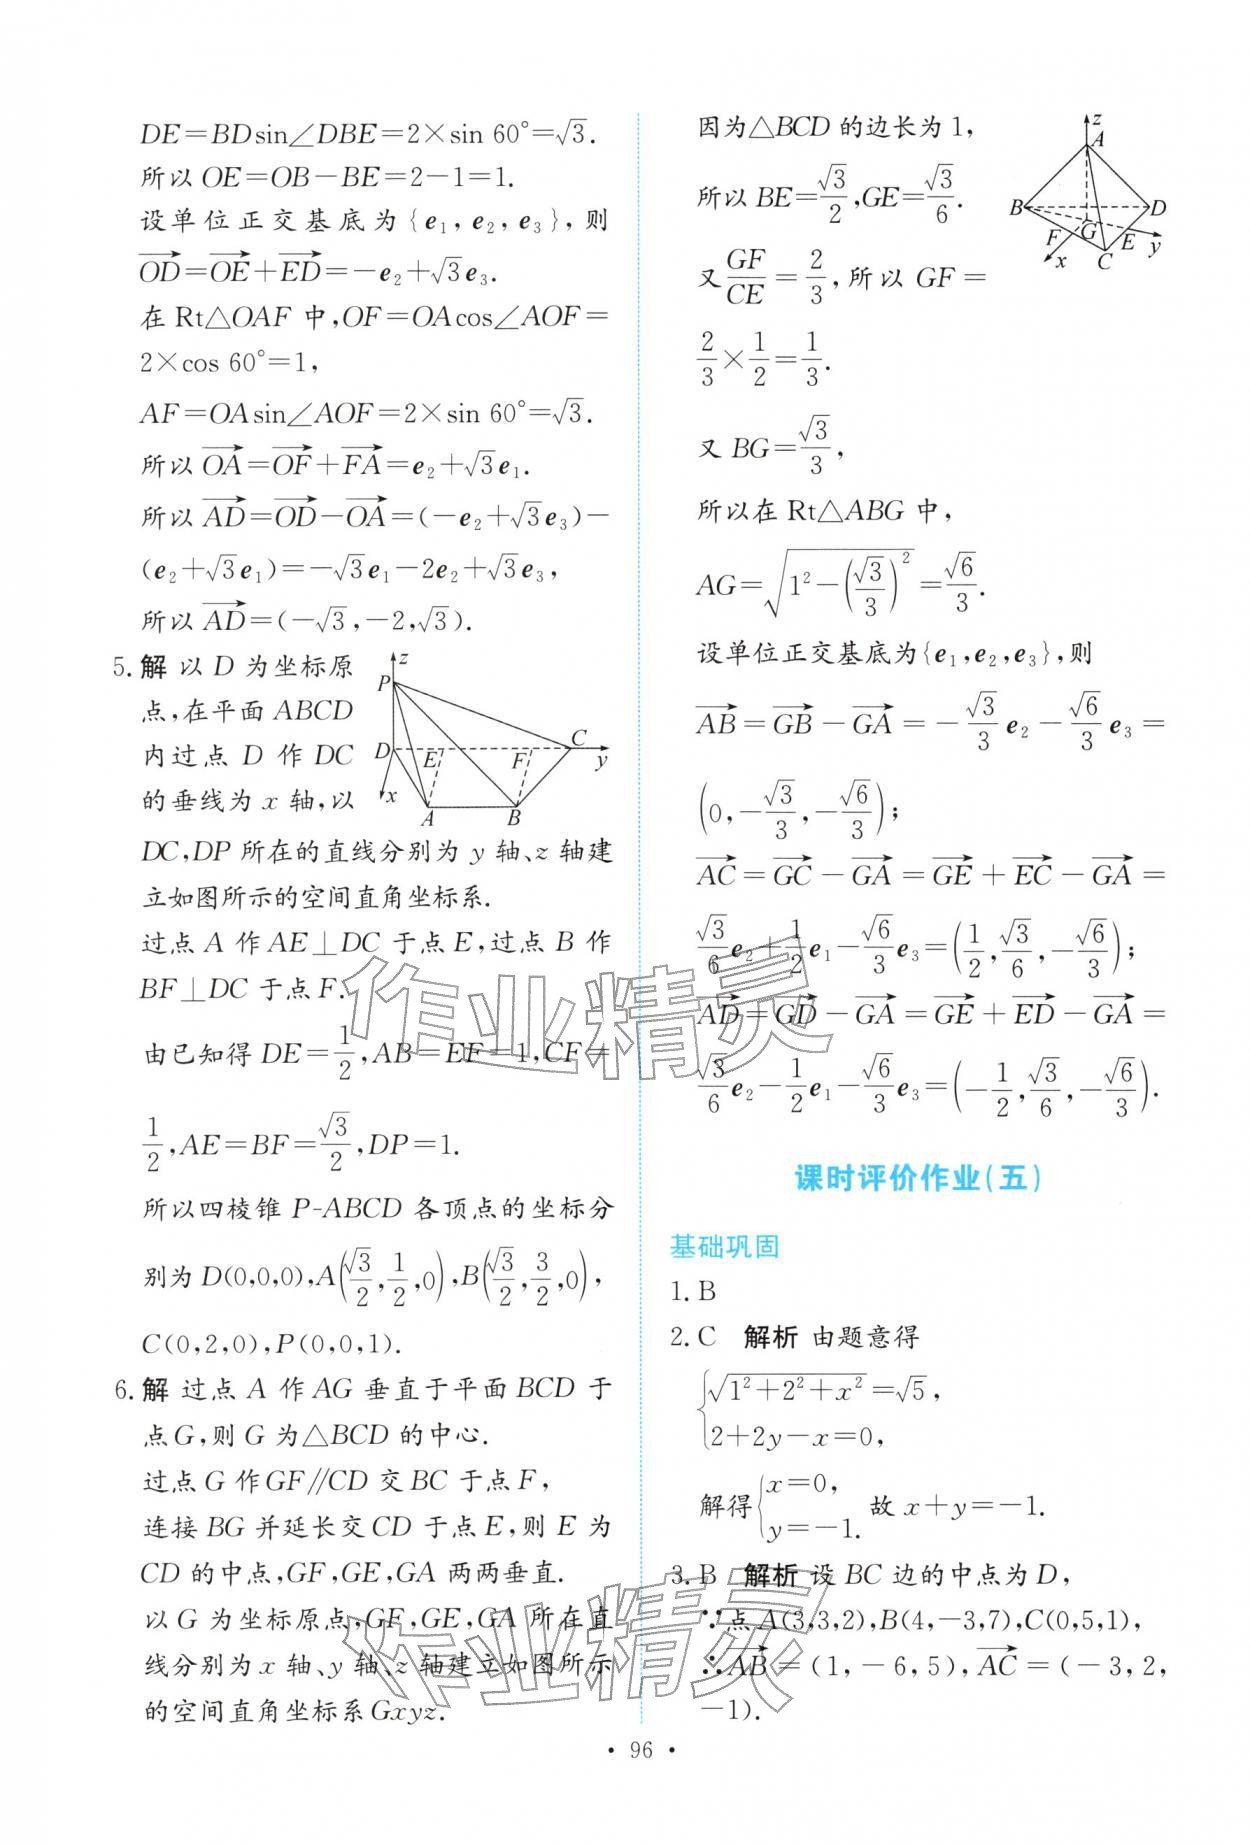 DE=BDsin∠DBE=2×sin 60°=√3.
所以 OE=OB−BE=2−1=1.
设单位正交基底为{e₁,e₂,e₃},则
OD→=OE→+ED→=−e₂+√3e₃.
在 Rt△OAF 中,OF=OAcos∠AOF=
2×cos 60°=1,
AF=OAsin∠AOF=2×sin 60°=√3.
所以 OA→=OF→+FA→=e₂+√3e₁.
所以 AD→=OD→−OA→=(−e₂+√3e₃)−
(e₂+√3e₁)=−√3e₁−2e₂+√3e₃,
所以 AD→=(−√3,−2,√3).
5. 解 以 D 为坐标原
点,在平面 ABCD
内过点 D 作 DC
的垂线为 x 轴,以
z
P
D
E
F
C
y
x
A
B
DC,DP 所在的直线分别为 y 轴、z 轴建
立如图所示的空间直角坐标系.
过点 A 作 AE⊥DC 于点 E,过点 B 作
BF⊥DC 于点 F.
由已知得 DE=1/2,AB=EF=1,CF=
1/2,AE=BF=√3/2,DP=1.
所以四棱锥 P-ABCD 各顶点的坐标分
别为 D(0,0,0),A(√3/2,1/2,0),B(√3/2,3/2,0),
C(0,2,0),P(0,0,1).
6. 解 过点 A 作 AG 垂直于平面 BCD 于
点G,则 G 为△BCD 的中心.
过点 G 作 GF∥CD 交 BC 于点 F,
连接 BG 并延长交 CD 于点 E,则 E 为
CD 的中点,GF,GE,GA 两两垂直.
以 G 为坐标原点,GF,GE,GA 所在直
线分别为 x 轴、y 轴、z 轴建立如图所示
的空间直角坐标系Gxyz.
因为△BCD 的边长为 1,
所以 BE=√3/2,GE=√3/6.
又GF/CE=2/3,所以 GF=
z
A
B
D
G
F
E
y
x
C
2/3×1/2=1/3.
又 BG=√3/3,
所以在 Rt△ABG 中,
AG=√(1²−(√3/3)²)=√6/3.
设单位正交基底为{e₁,e₂,e₃},则
AB→=GB→−GA→=−√3/3 e₂−√6/3 e₃=
(0,−√3/3,−√6/3);
AC→=GC→−GA→=GE→+EC→−GA→=
√3/6 e₂+1/2 e₁−√6/3 e₃=(1/2,√3/6,−√6/3);
AD→=GD→−GA→=GE→+ED→−GA→=
√3/6 e₂−1/2 e₁−√6/3 e₃=(−1/2,√3/6,−√6/3).
课时评价作业(五)
基础巩固
1. B
2. C 解析 由题意得
{√(1²+2²+x²)=√5,
2+2y−x=0,
解得{x=0,
y=−1.
故 x+y=−1.
3. B 解析 设 BC 边的中点为 D,
∵点 A(3,3,2),B(4,−3,7),C(0,5,1),
∴AB→=(1,−6,5),AC→=(−3,2,
−1).
作业精灵
作业精灵
• 96 •